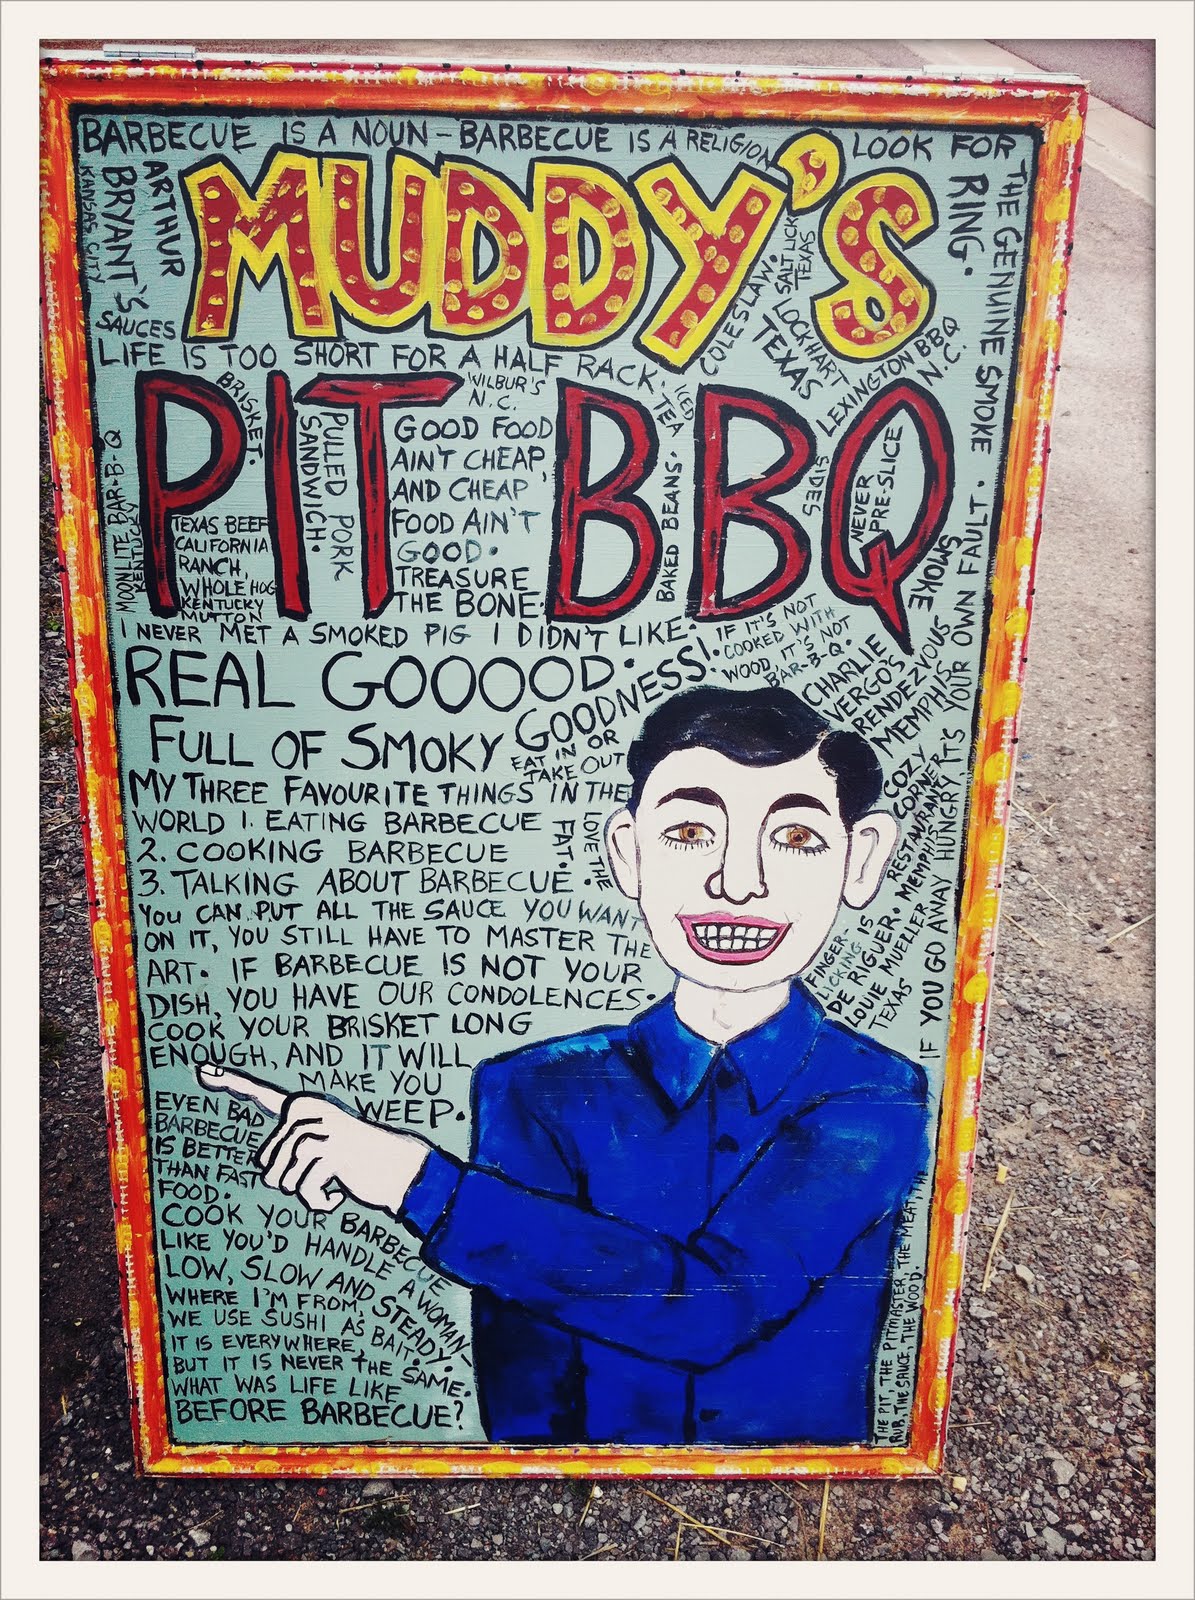 BARBECUE IS A NOUN – BARBECUE IS A RELIGION
LOOK FOR
THE GENUINE SMOKE
RING.
MUDDY'S
ARTHUR
BRYANT'S
KANSAS CITY
SAUCES
COLESLAW.
SALT LICK
TEXAS
LOCKHART
TEXAS
LEXINGTON BBQ
N.C.
LIFE IS TOO SHORT FOR A HALF RACK.
ICED
TEA
PIT BBQ
BRISKET.
PULLED PORK
SANDWICH.
WILBUR'S
N.C.
GOOD FOOD
AIN'T CHEAP,
AND CHEAP
FOOD AIN'T
GOOD.
TREASURE
THE BONE.
BAKED BEANS.
SIDES
NEVER
PRE-SLICE
MOONLITE BAR-B-Q
KENTUCKY
TEXAS BEEF
CALIFORNIA
RANCH,
WHOLE HOG
KENTUCKY
MUTTON
SMOKE
I NEVER MET A SMOKED PIG I DIDN'T LIKE.
IF IT'S NOT
COOKED WITH
WOOD, IT'S NOT
BAR-B-Q.
REAL GOOOOD.
GOODNESS!.
CHARLIE
VERGO'S
RENDEZVOUS
MEMPHIS
FULL OF SMOKY
EAT IN OR
TAKE OUT
COZY
CORNER
RESTAURANT
MEMPHIS
MY THREE FAVOURITE THINGS IN THE
WORLD 1. EATING BARBECUE
2. COOKING BARBECUE
3. TALKING ABOUT BARBECUE.
LOVE THE
FAT.
YOU CAN PUT ALL THE SAUCE YOU WANT
ON IT, YOU STILL HAVE TO MASTER THE
ART. IF BARBECUE IS NOT YOUR
DISH, YOU HAVE OUR CONDOLENCES.
COOK YOUR BRISKET LONG
ENOUGH, AND IT WILL
MAKE YOU
WEEP.
FINGER-
LICKING IS
DE RIGUER.
LOUIE MUELLER
TEXAS
IF YOU GO AWAY HUNGRY, IT'S YOUR OWN FAULT.
EVEN BAD
BARBECUE
IS BETTER
THAN FAST
FOOD.
COOK YOUR BARBECUE
LIKE YOU'D HANDLE A WOMAN-
LOW, SLOW AND STEADY.
WHERE I'M FROM,
WE USE SUSHI AS BAIT.
IT IS EVERYWHERE,
BUT IT IS NEVER THE SAME.
WHAT WAS LIFE LIKE
BEFORE BARBECUE?
THE PIT, THE PITMASTER, THE MEAT, THE
RUB, THE SAUCE, THE WOOD.